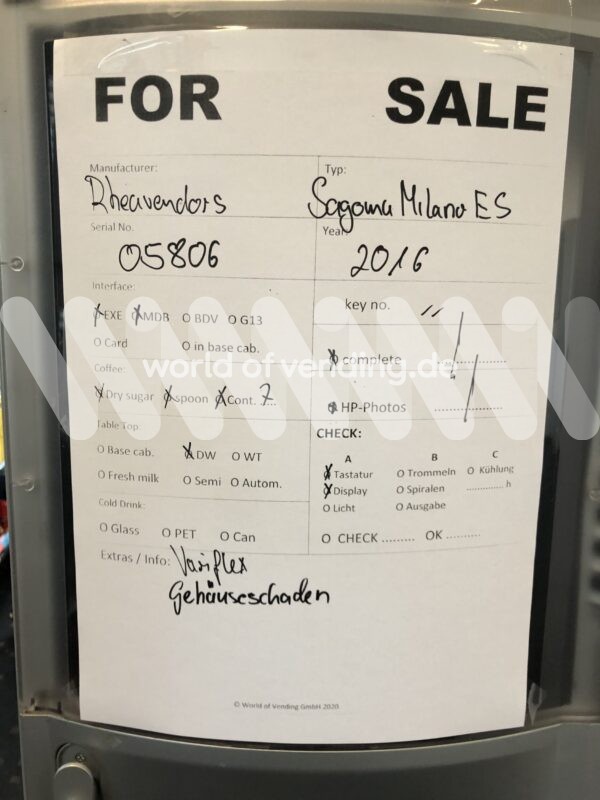 FOR SALE
Manufacturer: Typ:
Rheavendors Sagoma Milano ES
Serial No. Year
05806 2016
Interface: key no. //
EXE MDB O BDV O G13
O Card O in base cab. complete
world of vending.de
Coffee:
Dry sugar spoon Cont. 7 HP-Photos
Table Top CHECK:
O Base cab. DW O WT A B C
O Fresh milk O Semi O Autom. Tastatur O Trommeln O Kühlung
Display O Spiralen .......... h
Cold Drink: O Licht O Ausgabe
O Glass O PET O Can O CHECK ......... OK ..........
Extras / Info: Variflex
Gehäuseschaden
© World of Vending GmbH 2020